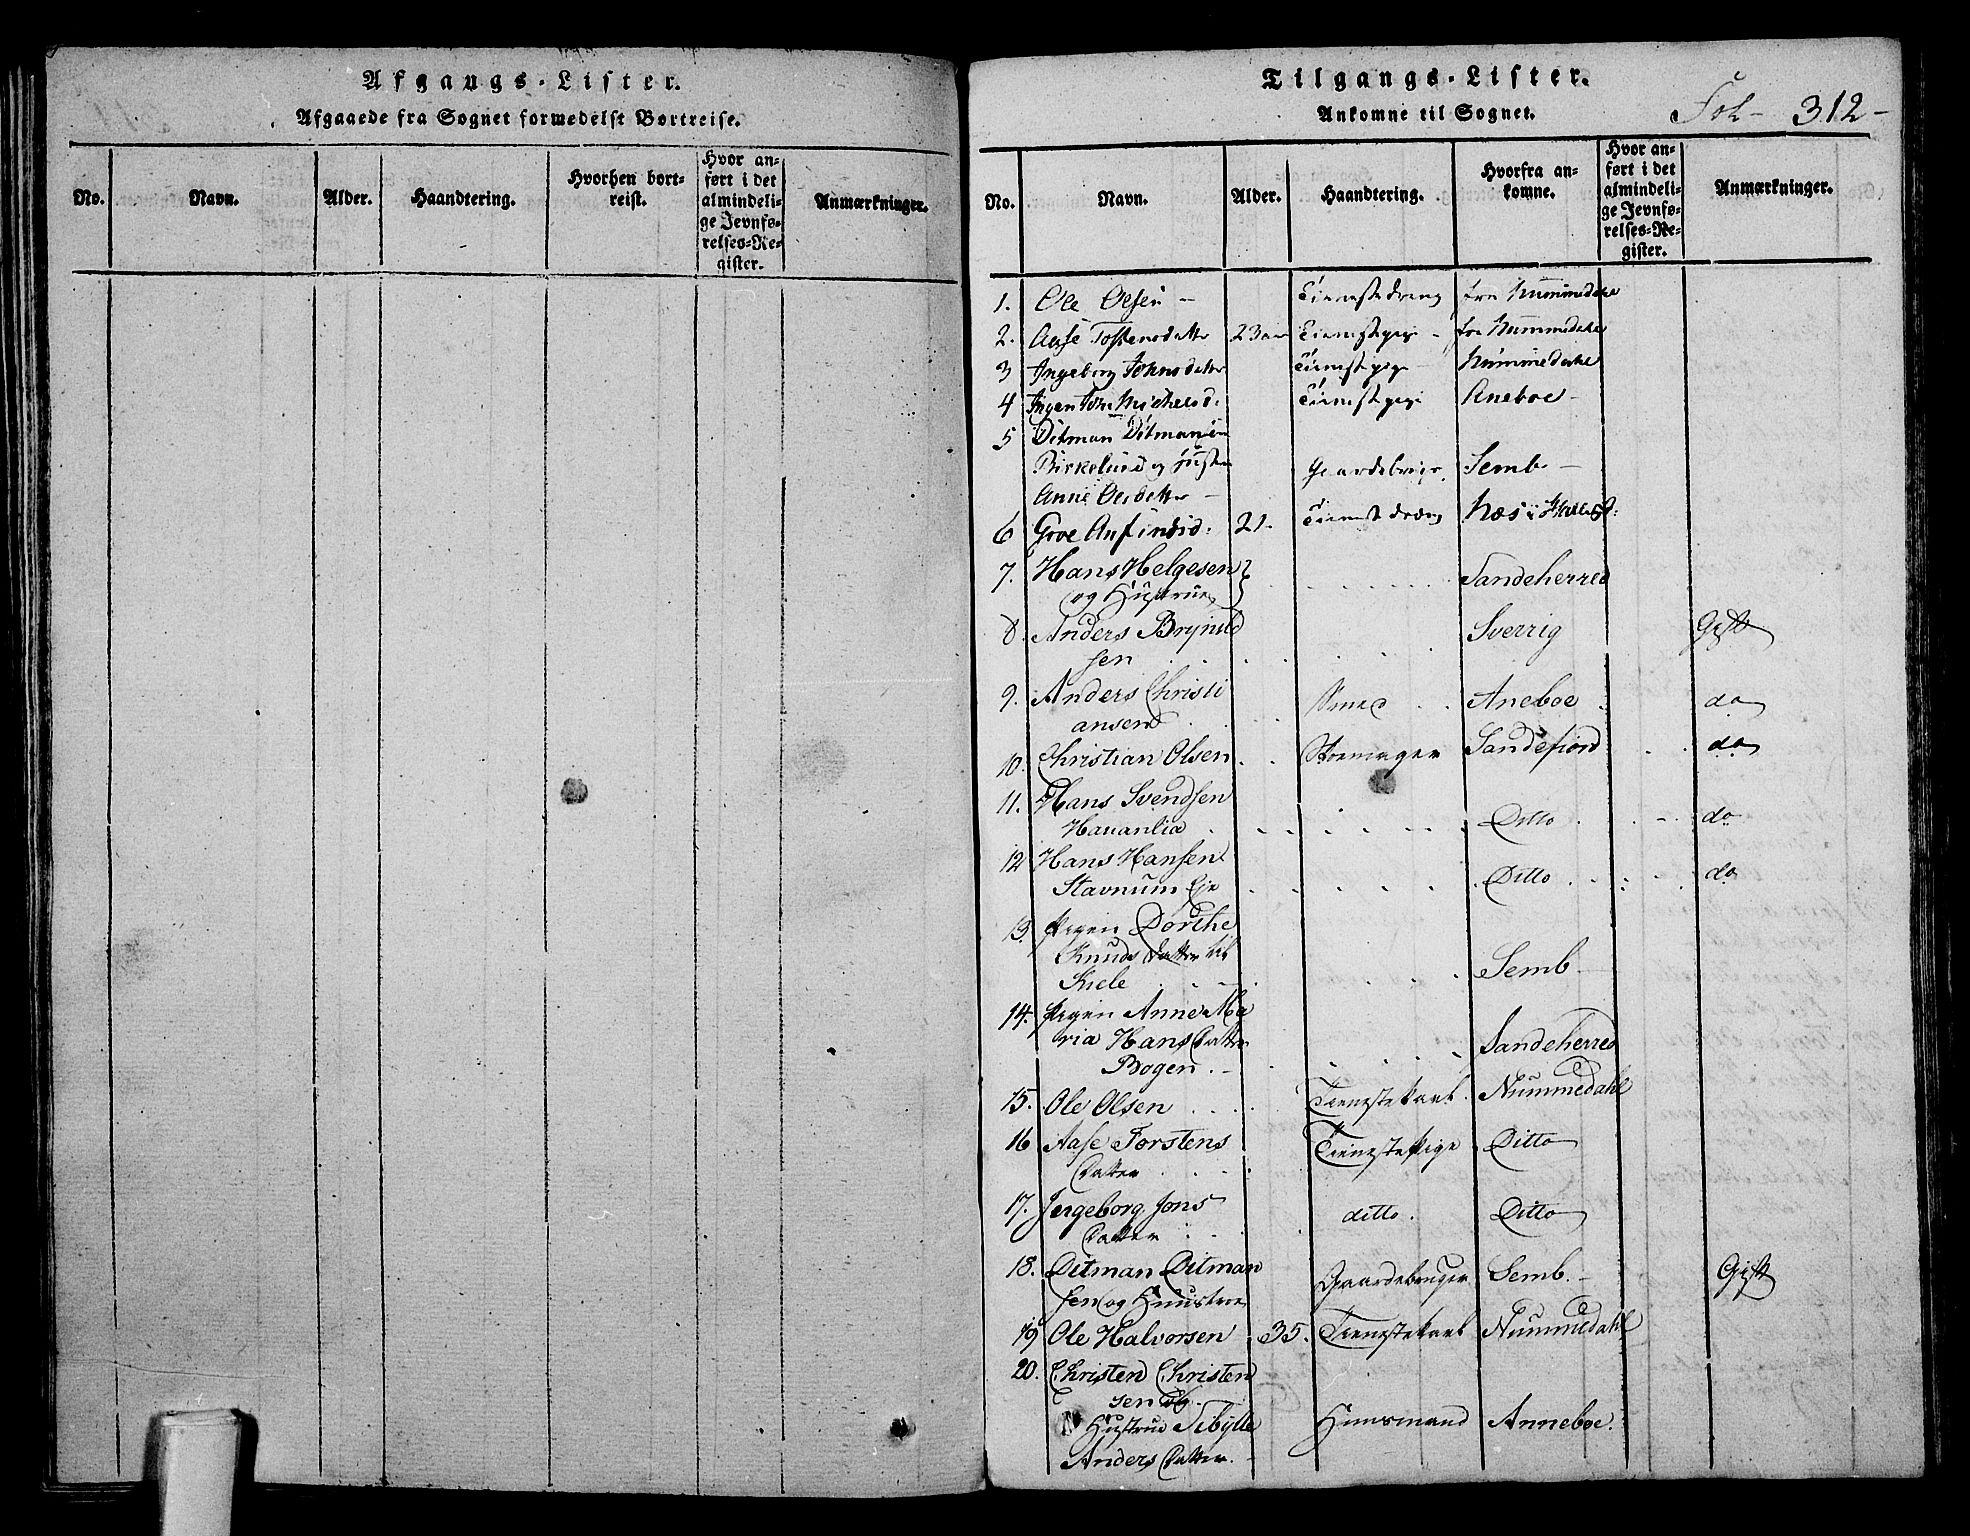 Afgangs-Lister.
Afgaaede fra Sognet formedelst Bortreise.
No.
Navn.
Alder.
Haandtering.
Hvorhen bort-
reist.
Hvor an-
ført i det
almindeli-
ge Jevnfø-
relses-Re-
gister.
Anmærkninger.
Tilgangs-Lister.
Ankomne til Sognet.
Fol- 312-
No.
Navn.
Alder.
Haandtering.
Hvorfra an-
komne.
Hvor an-
ført i det
almindeli-
ge Jevnfø-
relses-Re-
gister.
Anmærkninger.
1. Ole Olsen - Tienestedreng fra Nummedahl
2. Aase Tostensdatter 23 aar Tienestepige - fra Nummedahl
3 Ingeborg Johnsdatter Tienestepige - Nummedahl
4 Ingen Michelsd: Tienestepige Aneboe -
5 Ditman Ditmansen
Birkelund og Hustru Gaardebruger Semb -
Anne Olsdatter -
6 Groe Anfindsd: 21. Tieneste Næs i Hallingd:
7. Hans Helgesen
og Hustrue Sandeherred
8. Anders Brynild
sen Sverrig Gift
9. Anders Christi
ansen Smed Aneboe do
10. Christian Olsen Skoemager Sandefiord do
11. Hans Svendsen
Havanlia Ditto do
12 Hans Hansen
Stavnum Eje Ditto do
13. Pigen Dorthe
Knuds Datter til
Semb
14. Pigen Anne Ma
ria Hans Datter Sandeherred
Bogen
15. Ole Olsen Tienestekarl Nummedahl
16 Aase Torstens Tienestepige Ditto
Datter
17. Ingeborg Jons ditto. Ditto
Datter
18. Ditman Ditman Gaardebruger Semb. - Gift
sen og Huustroe
19 Ole Halvorsen 35. Tienestekarl Nummedahl
20. Christen Christen
sen og
Hustrue Sibylle Huusmand Anneboe.
Anders Datter. -